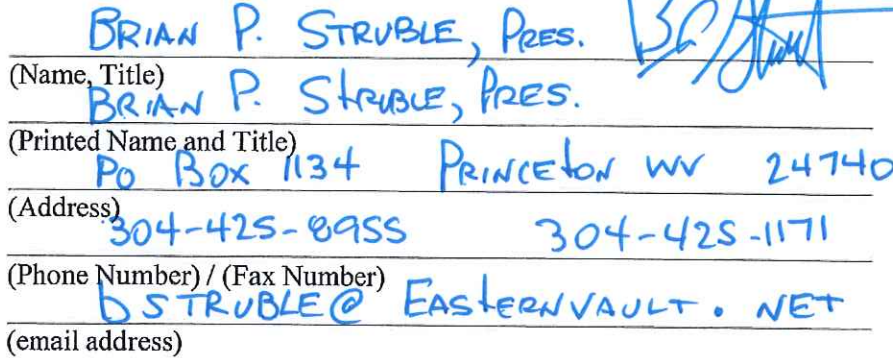 BRIAN P. STRUBLE, PRES.
(Name, Title)
BRIAN P. STRUBLE, PRES.
(Printed Name and Title)
PO BOX 1134 PRINCETON WV 24740
(Address)
304-425-8955 304-425-1171
(Phone Number) / (Fax Number)
bSTRUBLE@ EASTERNVAULT. NET
(email address)